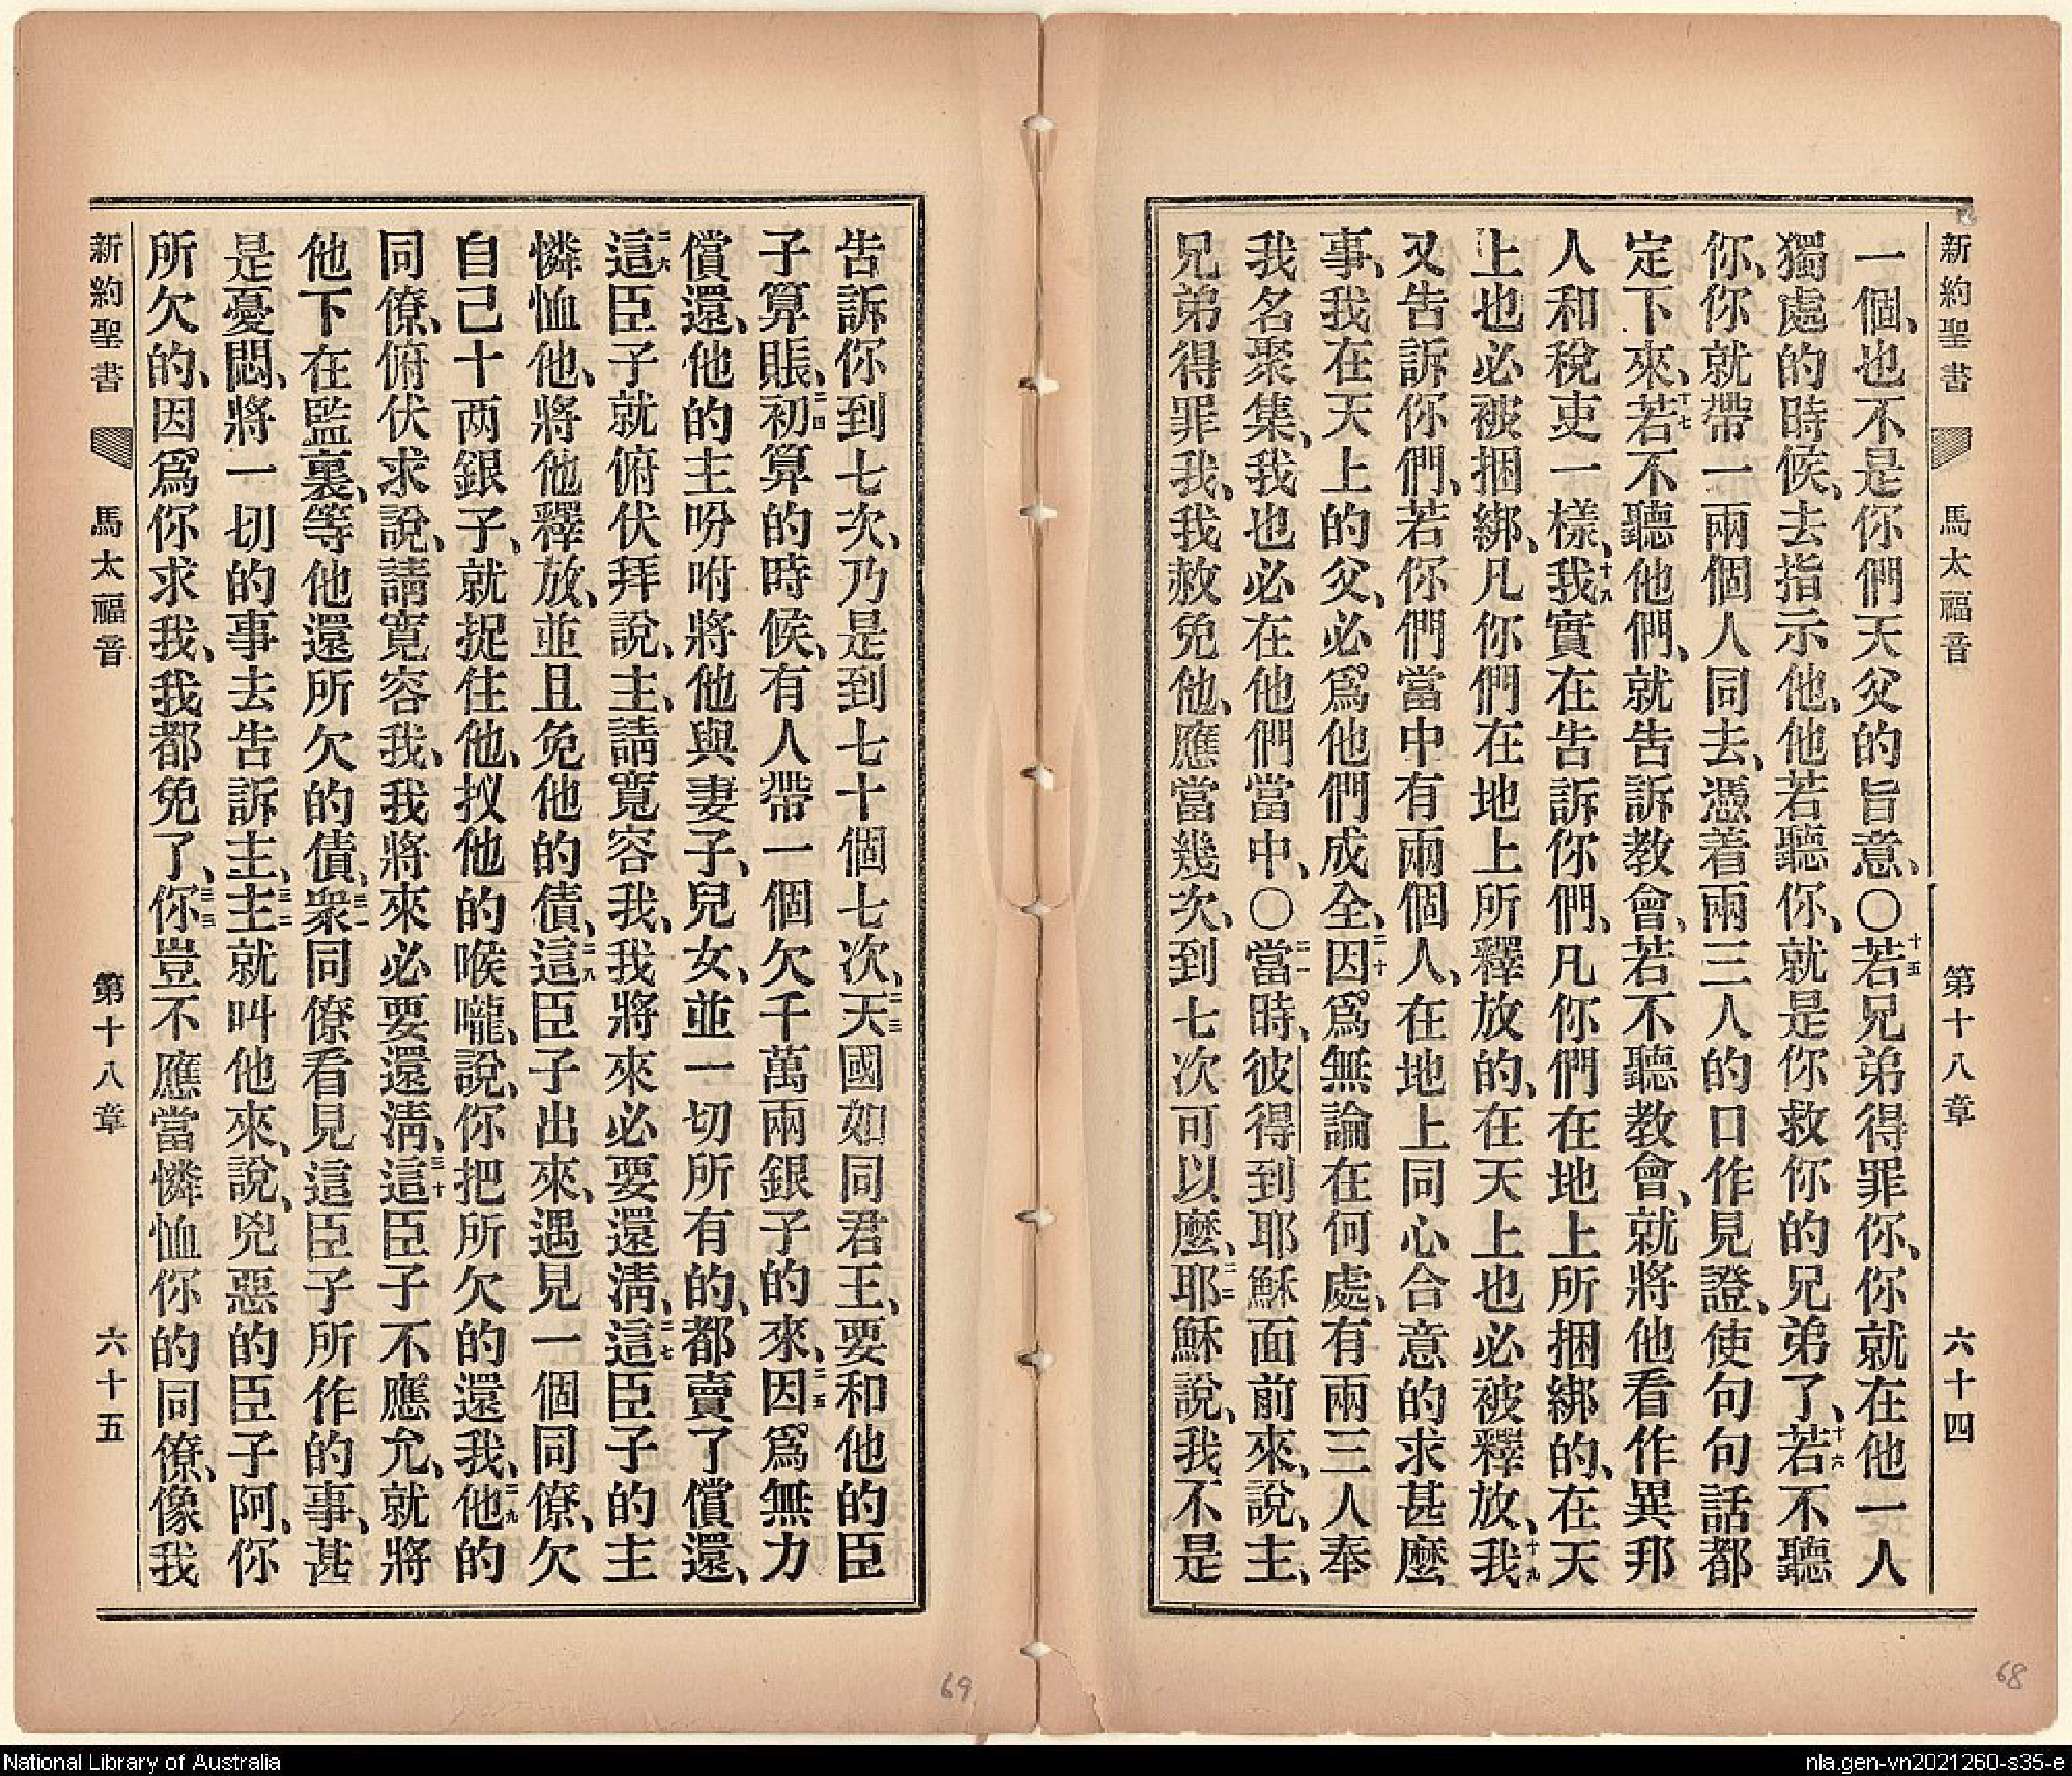 新約聖書 馬太福音 第十八章 六十四
一個、也不是你們天父的旨意、〇十五若兄弟得罪你、你就在他一人
獨處的時候、去指示他、他若聽你、就是你救你的兄弟了、十六若不聽
你、你就帶一兩個人同去、憑着兩三人的口作見證、使句句話都
定下來、十七若不聽他們、就告訴教會、若不聽教會、就將他看作異邦
人和稅吏一樣、十八我實在告訴你們、凡你們在地上所捆綁的、在天
上也必被捆綁、凡你們在地上所釋放的、在天上也必被釋放、十九我
又告訴你們、若你們當中有兩個人、在地上同心合意的求甚麼
事、我在天上的父、必爲他們成全、二十因爲無論在何處、有兩三人奉
我名聚集、我也必在他們當中、〇二一當時、彼得到耶穌面前來、說、主、
兄弟得罪我、我赦免他、應當幾次、到七次可以麼、二二耶穌說、我不是
告訴你到七次、乃是到七十個七次、二三天國如同君王、要和他的臣
子算賬、二四初算的時候、有人帶一個欠千萬兩銀子的來、二五因爲無力
償還、他的主吩咐將他與妻子、兒女、並一切所有的、都賣了償還、
二六這臣子就俯伏拜說、主、請寬容我、我將來必要還淸、二七這臣子的主
憐恤他、將他釋放、並且免他的債、二八這臣子出來、遇見一個同僚、欠
自己十两銀子、就捉住他、扠他的喉嚨、說、你把所欠的還我、二九他的
同僚、俯伏求說、請寬容我、我將來必要還淸、三十這臣子不應允、就將
他下在監裏、等他還所欠的債、三一衆同僚看見這臣子所作的事、甚
是憂悶、將一切的事去告訴主、三二主就叫他來、說、兇惡的臣子阿、你
所欠的、因爲你求我、我都免了、三三你豈不應當憐恤你的同僚、像我
新約聖書 馬太福音 第十八章 六十五
69
68
National Library of Australia
nla.gen-vn2021260-s35-e